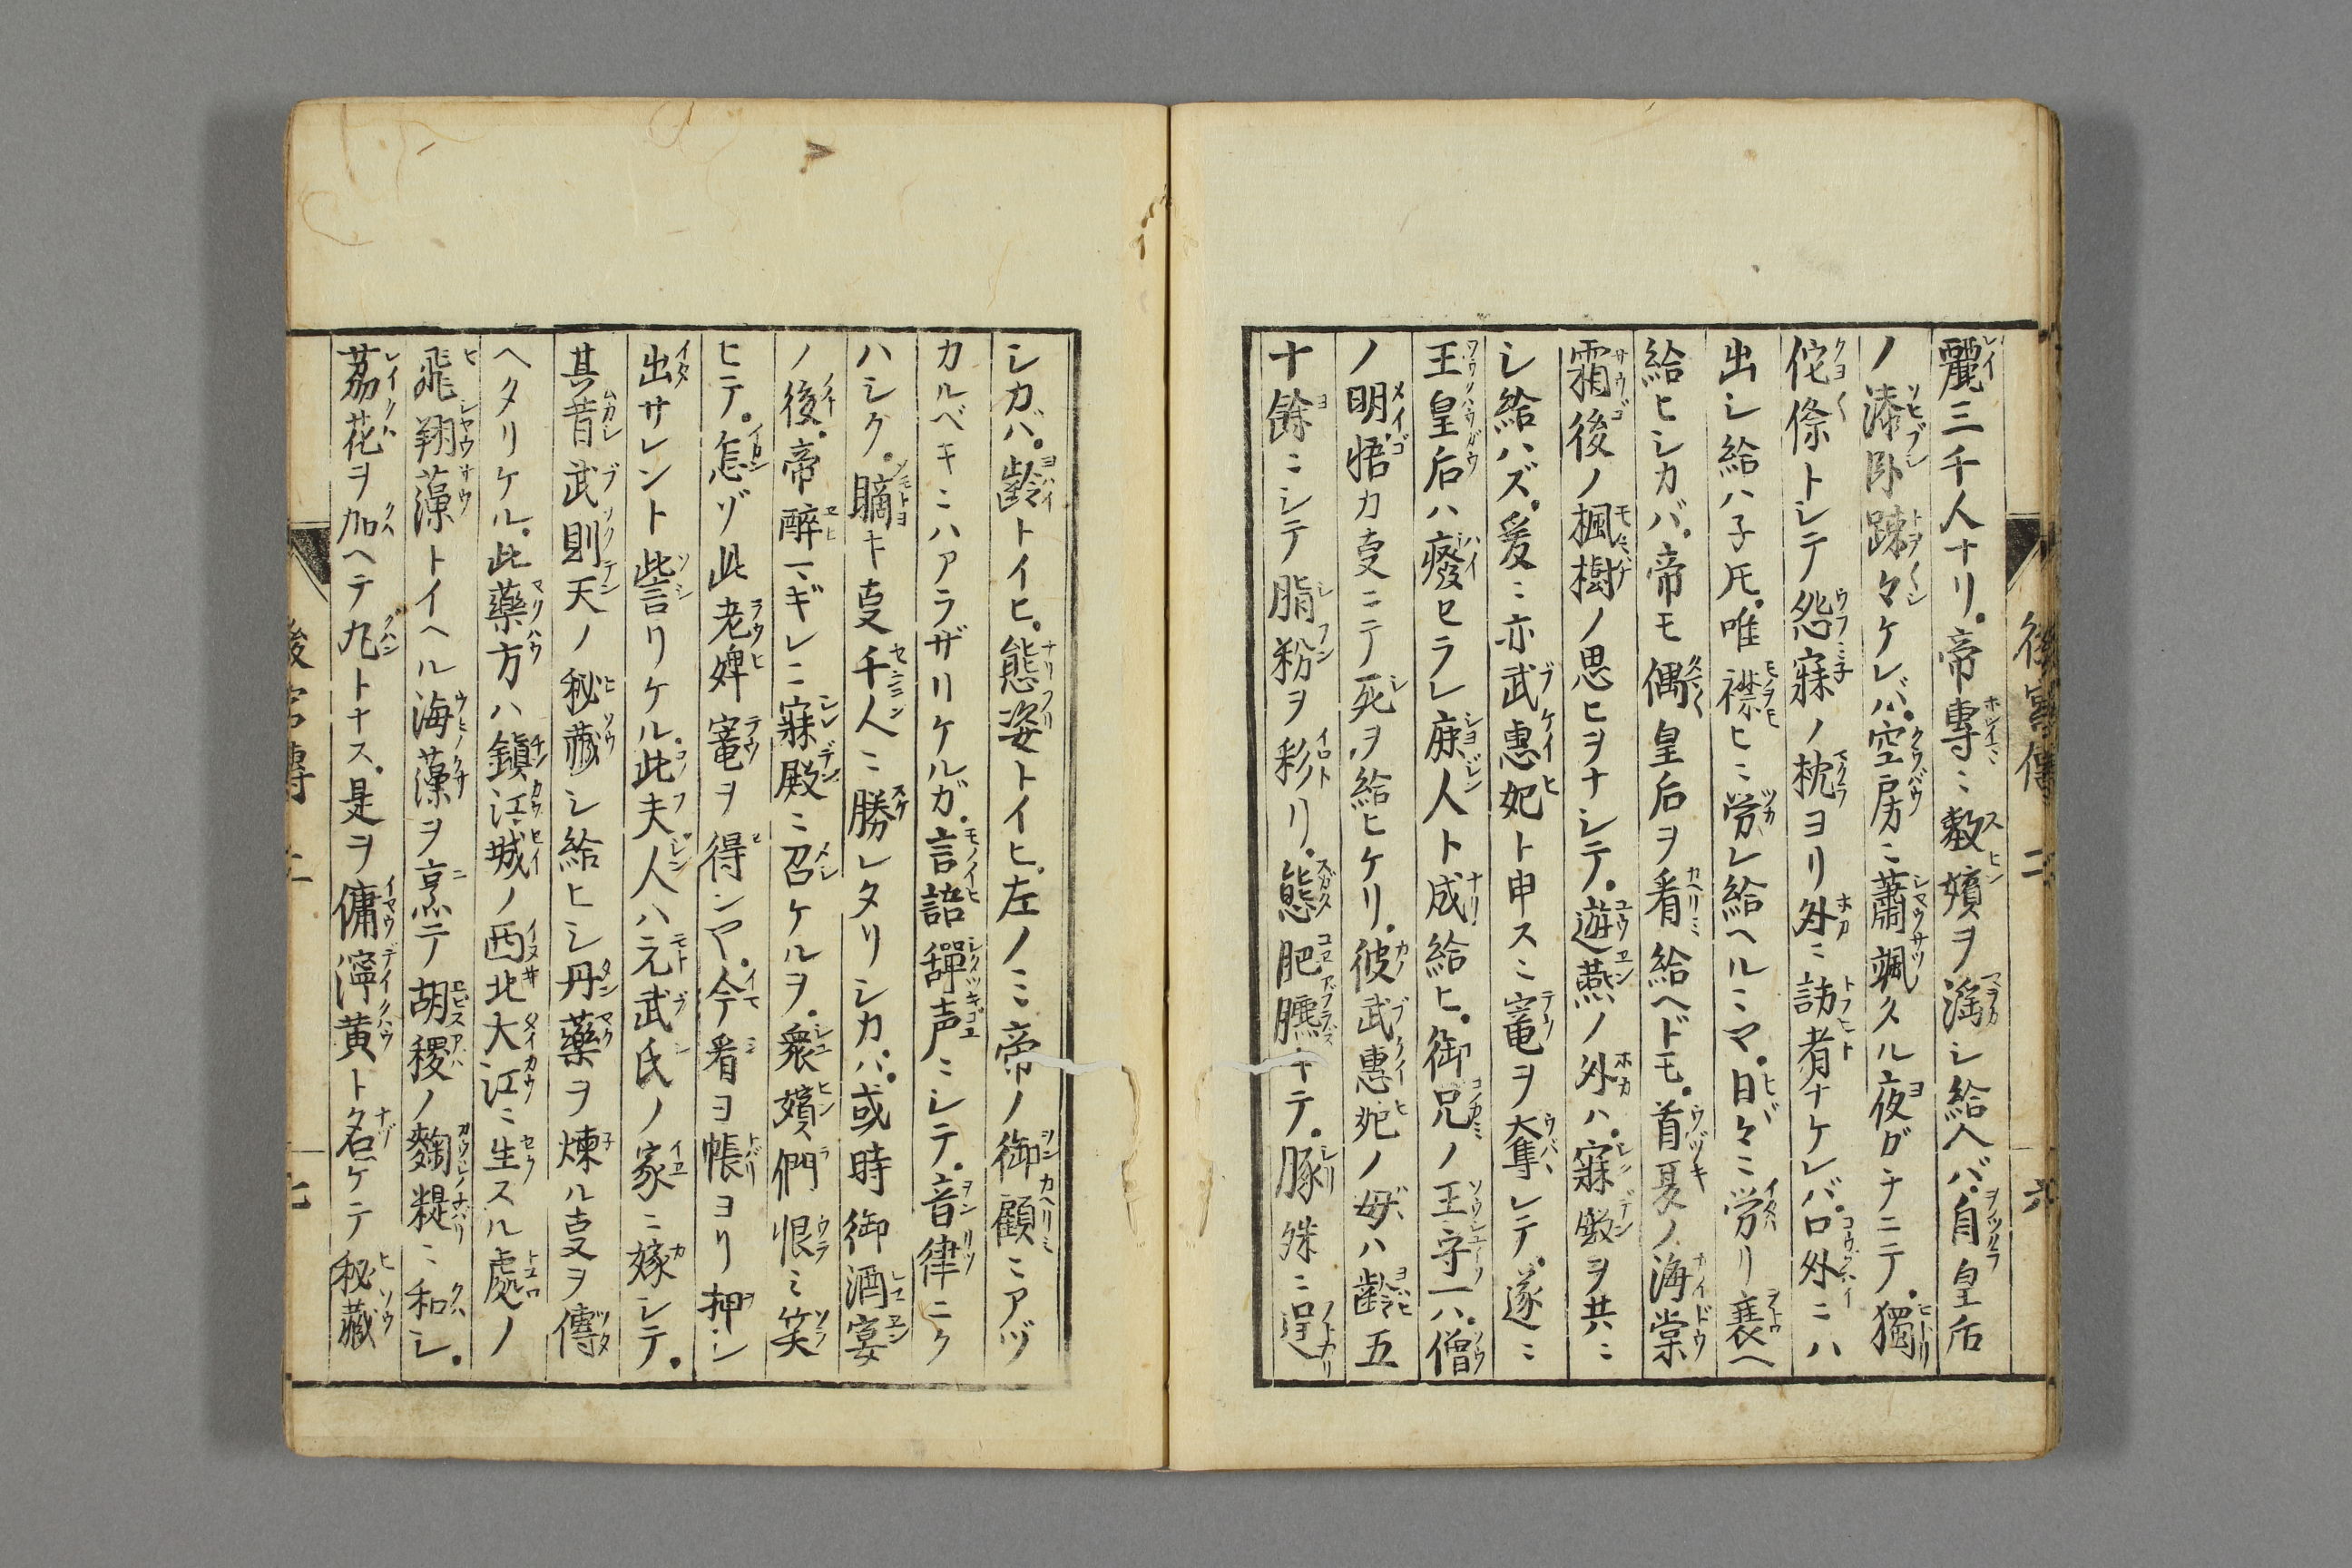 後宮傳 二 六
麗三千人ナリ。帝專ニ數嬪ヲ淫シ給ヘバ。自皇后
ノ添臥踈々ケレバ。空房ニ蕭颯クル夜ガチニテ。獨
侘傺トシテ怨寐ノ枕ヨリ外ニ訪者ナケレバ。口外ニハ
出シ給ハ子𪜈。唯襟ヒニ労レ給ヘルミマ。日々ニ労リ衰ヘ
給ヒシカバ。帝モ偶皇后ヲ看給ヘドモ。首夏ノ海棠
霜後ノ楓樹ノ思ヒヲナシテ。遊燕ノ外ハ。寐殿ヲ共ニ
シ給ハズ。爰ニ亦武惠妃ト申スニ寵ヲ奪レテ。遂ニ
王皇后ハ癈セラレ庶人ト成給ヒ。御兄ノ王守一ハ。僧
ノ明悟カ㕝ニテ死ヲ給ヒケリ。彼武惠妃ノ母ハ齡五
十餘ニシテ脂粉ヲ彩リ。態肥臕ナテ。豚殊ニ逞
シカバ。齡トイヒ。態姿トイヒ。左ノミ帝ノ御顧ニアヅ
カルベキニハアラザリケルガ。言語嚲声ニシテ。音律ニク
ハシク。 キ㕝千人ニ勝レタリシカバ。或時御酒宴
ノ後。帝醉マギレニ寐殿ニ召ケルヲ。衆嬪們恨ミ笑
ヒテ。怎ゾ此老婢寵ヲ得ンヤ。今看ヨ帳ヨリ押シ
出サレント訾リケル。此夫人ハ元武氏ノ家ニ嫁シテ。
其昔武則天ノ秘藏シ給ヒシ丹藥ヲ煉ル㕝ヲ傳
ヘタリケル。此藥方ハ鎮江城ノ西北大江ニ生スル處ノ
飛翔藻トイヘル海藻ヲ烹テ胡稷ノ麴糶ニ和シ。
茘花ヲ加ヘテ丸トナス。是ヲ傭濘黄ト名ケテ秘藏
後宮傳 二 七